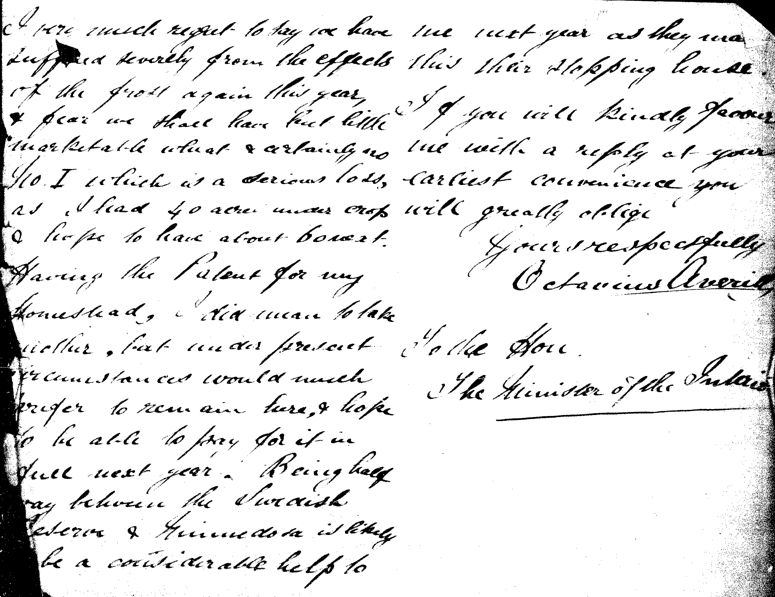 I very much regret to say we have
suffered severely from the effects
of the frost again this year,
& fear we shall have but little
marketable wheat & certainly no
No. I which is a serious loss,
as I had 40 acres under crop
& hope to have about 60 next.
Having the Patent for my
Homestead, I did mean to take
another, but under present
circumstances would much
prefer to remain here, & hope
to be able to pay for it in
full next year. Being half
way between the Swedish
Reserve & Minnedosa is likely
be a considerable help to
me next year as they ma
this their stopping house.
If you will kindly favour
me with a reply at your
earliest convenience you
will greatly oblige
Yours respectfully
Octavius Averill
To the Hon.
The Minister of the Interior